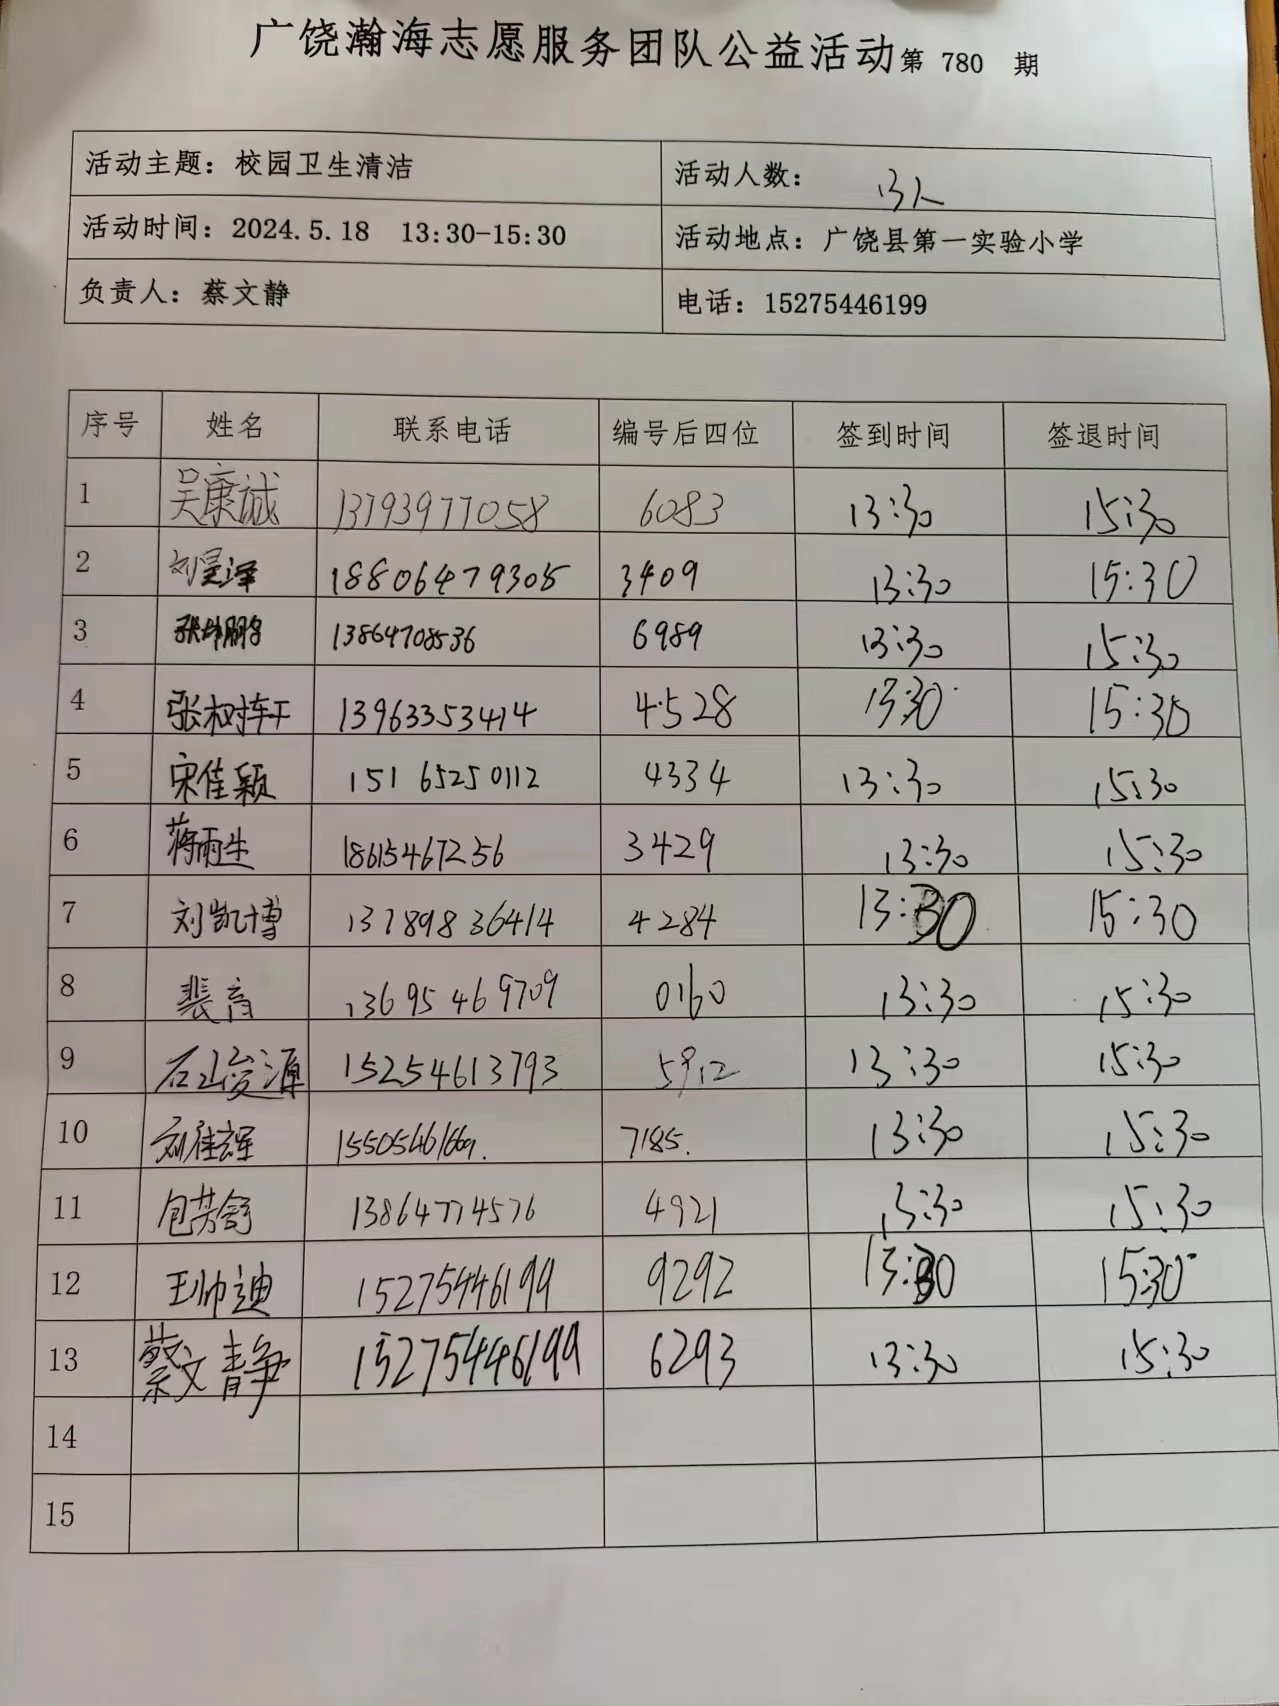 广饶瀚海志愿服务团队公益活动第 780 期
活动主题：校园卫生清洁 活动人数： 13人
活动时间：2024.5.18 13:30-15:30 活动地点：广饶县第一实验小学
负责人：蔡文静 电话：15275446199
序号 姓名 联系电话 编号后四位 签到时间 签退时间
1 吴康诚 13793977058 6083 13:30 15:30
2 刘昊泽 18806479305 3409 13:30 15:30
3 13864708536 6989 13:30 15:30
4 张树轩 13963353414 4528 13:30 15:30
5 宋佳颖 15165250112 4334 13:30 15:30
6 蒋雨生 18615467256 3429 13:30 15:30
7 刘凯博 13789836414 4284 13:30 15:30
8 裴育 13695469709 0160 13:30 15:30
9 石峻源 15254613793 5912 13:30 15:30
10 刘佳辉 7185. 13:30 15:30
11 包芸舒 13864774576 4921 13:30 15:30
12 王帅迪 15275446199 9292 13:30 15:30
13 蔡文静 15275446199 6293 13:30 15:30
14
15